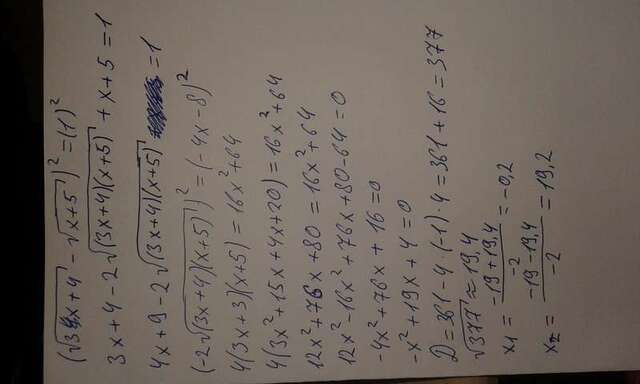 (√(3x+4) - √(x+5))² = (1)²
3x+4-2√((3x+4)(x+5)) + x+5 = 1
4x+9-2√((3x+4)(x+5)) = 1
(-2√((3x+4)(x+5)))² = (-4x-8)²
4(3x+3)(x+5) = 16x²+64
4(3x²+15x+4x+20) = 16x²+64
12x²+76x+80 = 16x²+64
12x²-16x²+76x+80-64=0
-4x²+76x+16=0
-x²+19x+4=0
D=361-4·(-1)·4=361+16=377
√377≈19,4
x1 = (-19+19,4)/-2 = -0,2
x2 = (-19-19,4)/-2 = 19,2